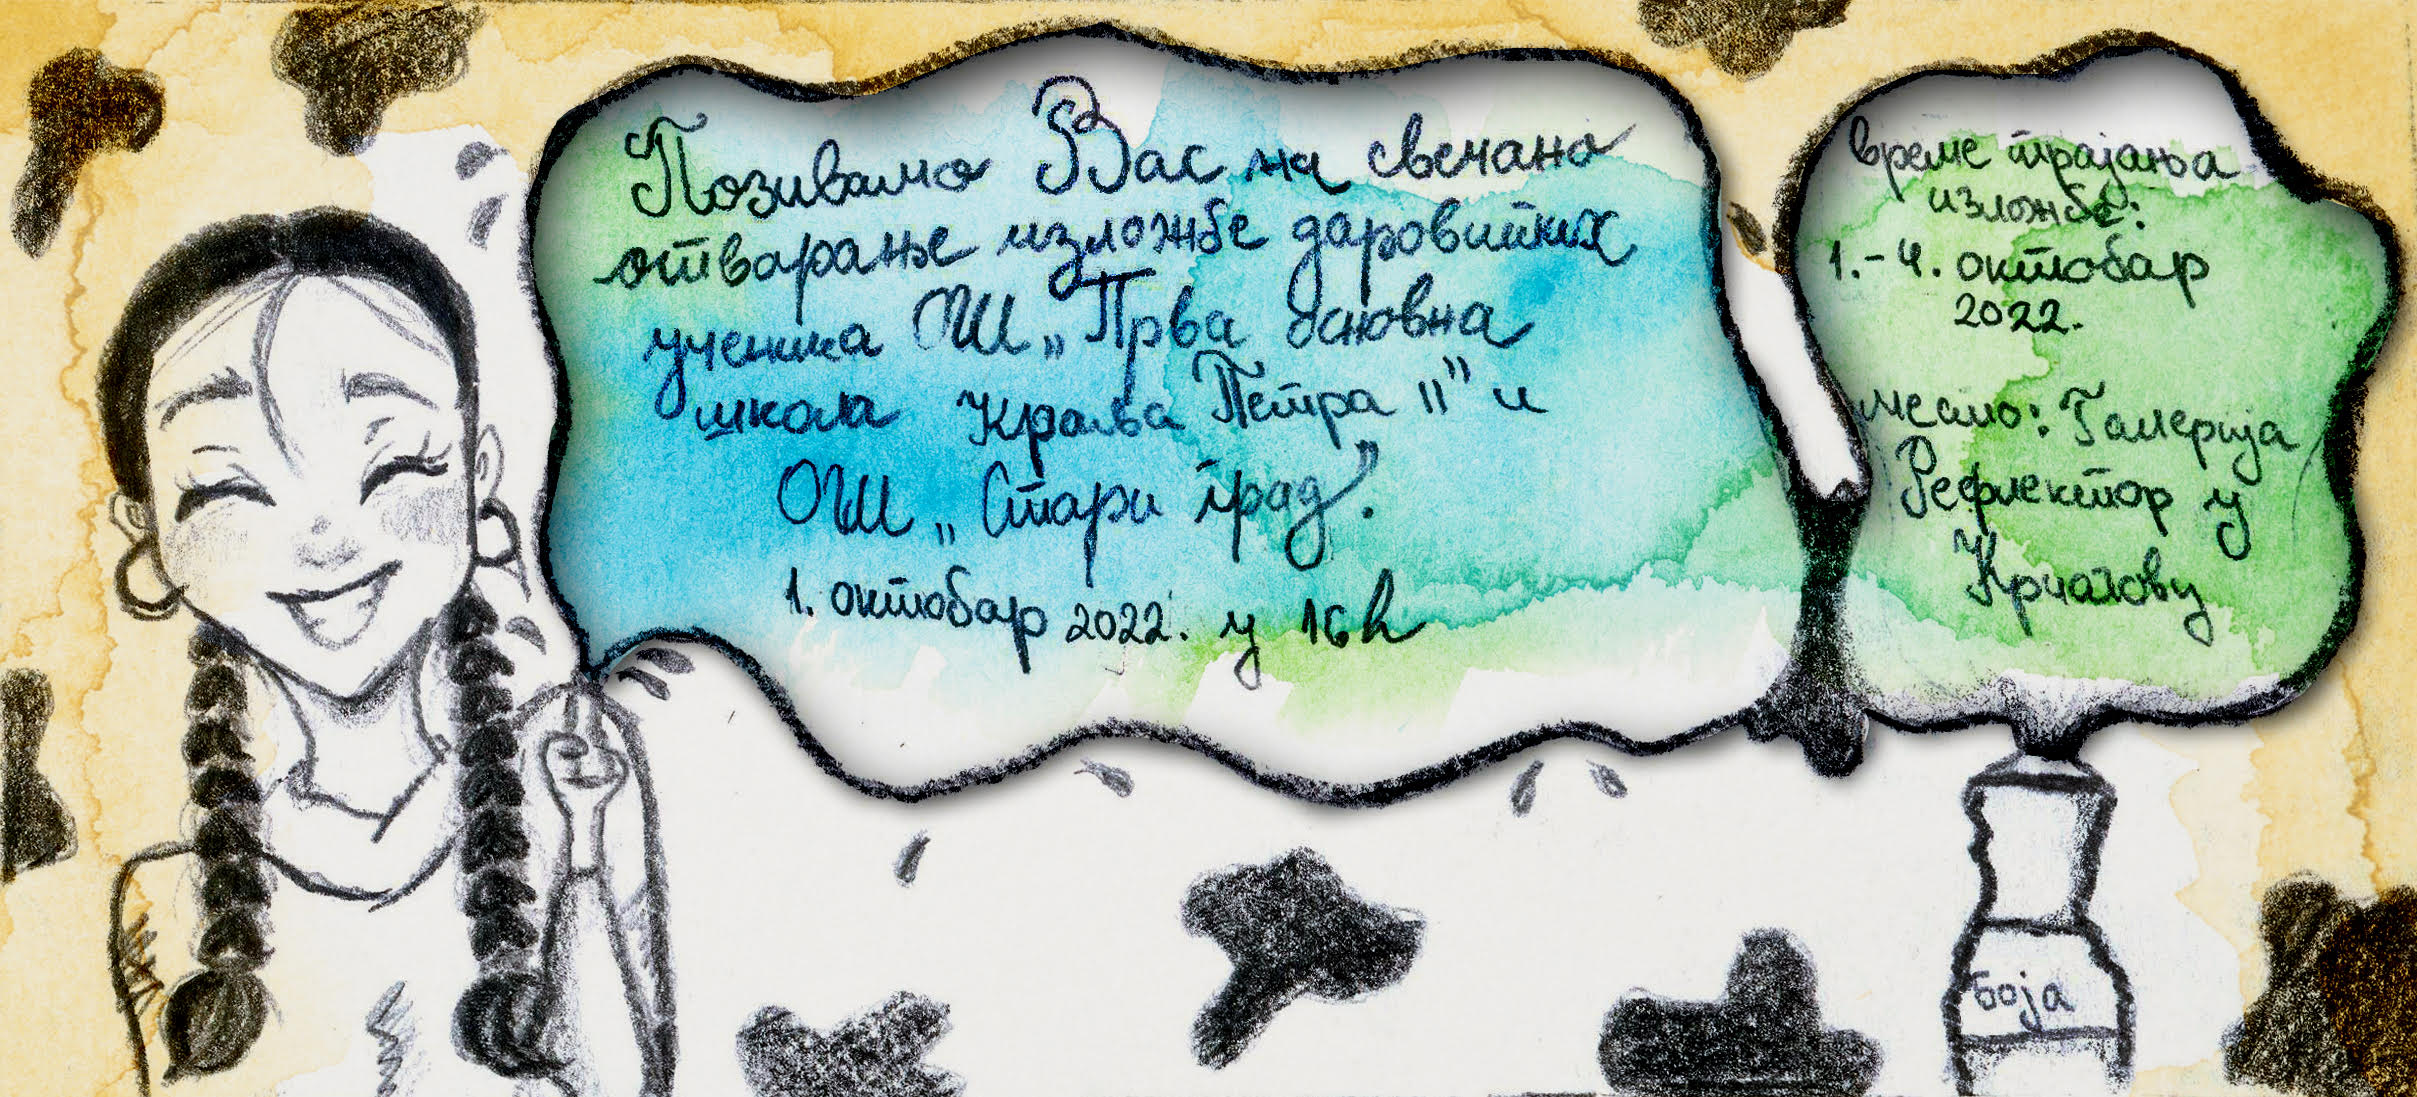 Позивамо Вас на свечано
отварање изложбе даровитих
ученика ОШ „Прва основна
школа Краља Петра II” и
ОШ „Стари град”.
1. октобар 2022. у 16 h
време трајања
изложбе:
1.-4. октобар
2022.
место: Галерија
Рефлектор у
боја